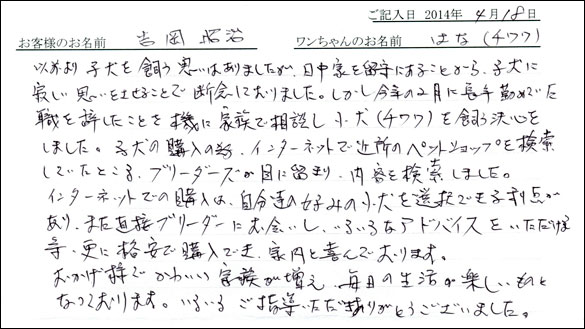 ご記入日 2014年 4月18日
お客様のお名前 吉岡昭治 ワンちゃんのお名前 はな(チワワ)
以前より子犬を飼う思いはありましたが、日中家を留守にすることから、子犬に
寂しい思いをさせることで断念しておりました。しかし今年の2月に長年勤めていた
職を辞したことを機に家族で相談し小犬(チワワ)を飼う決心を
しました。子犬の購入の為、インターネットで近所のペットショップを検索
していたところ、ブリーダーズが目に留まり、内容を検索しました。
インターネットでの購入は、自分達の好みの小犬を選択できる利点が
あり、また直接ブリーダーにお会いし、いろいろなアドバイスをいただける
等、更に格安で購入でき、家内と喜んでおります。
おかげ様でかわいい家族が増え、毎日の生活が楽しいものと
なっております。いろいろご指導いただきありがとうございました。